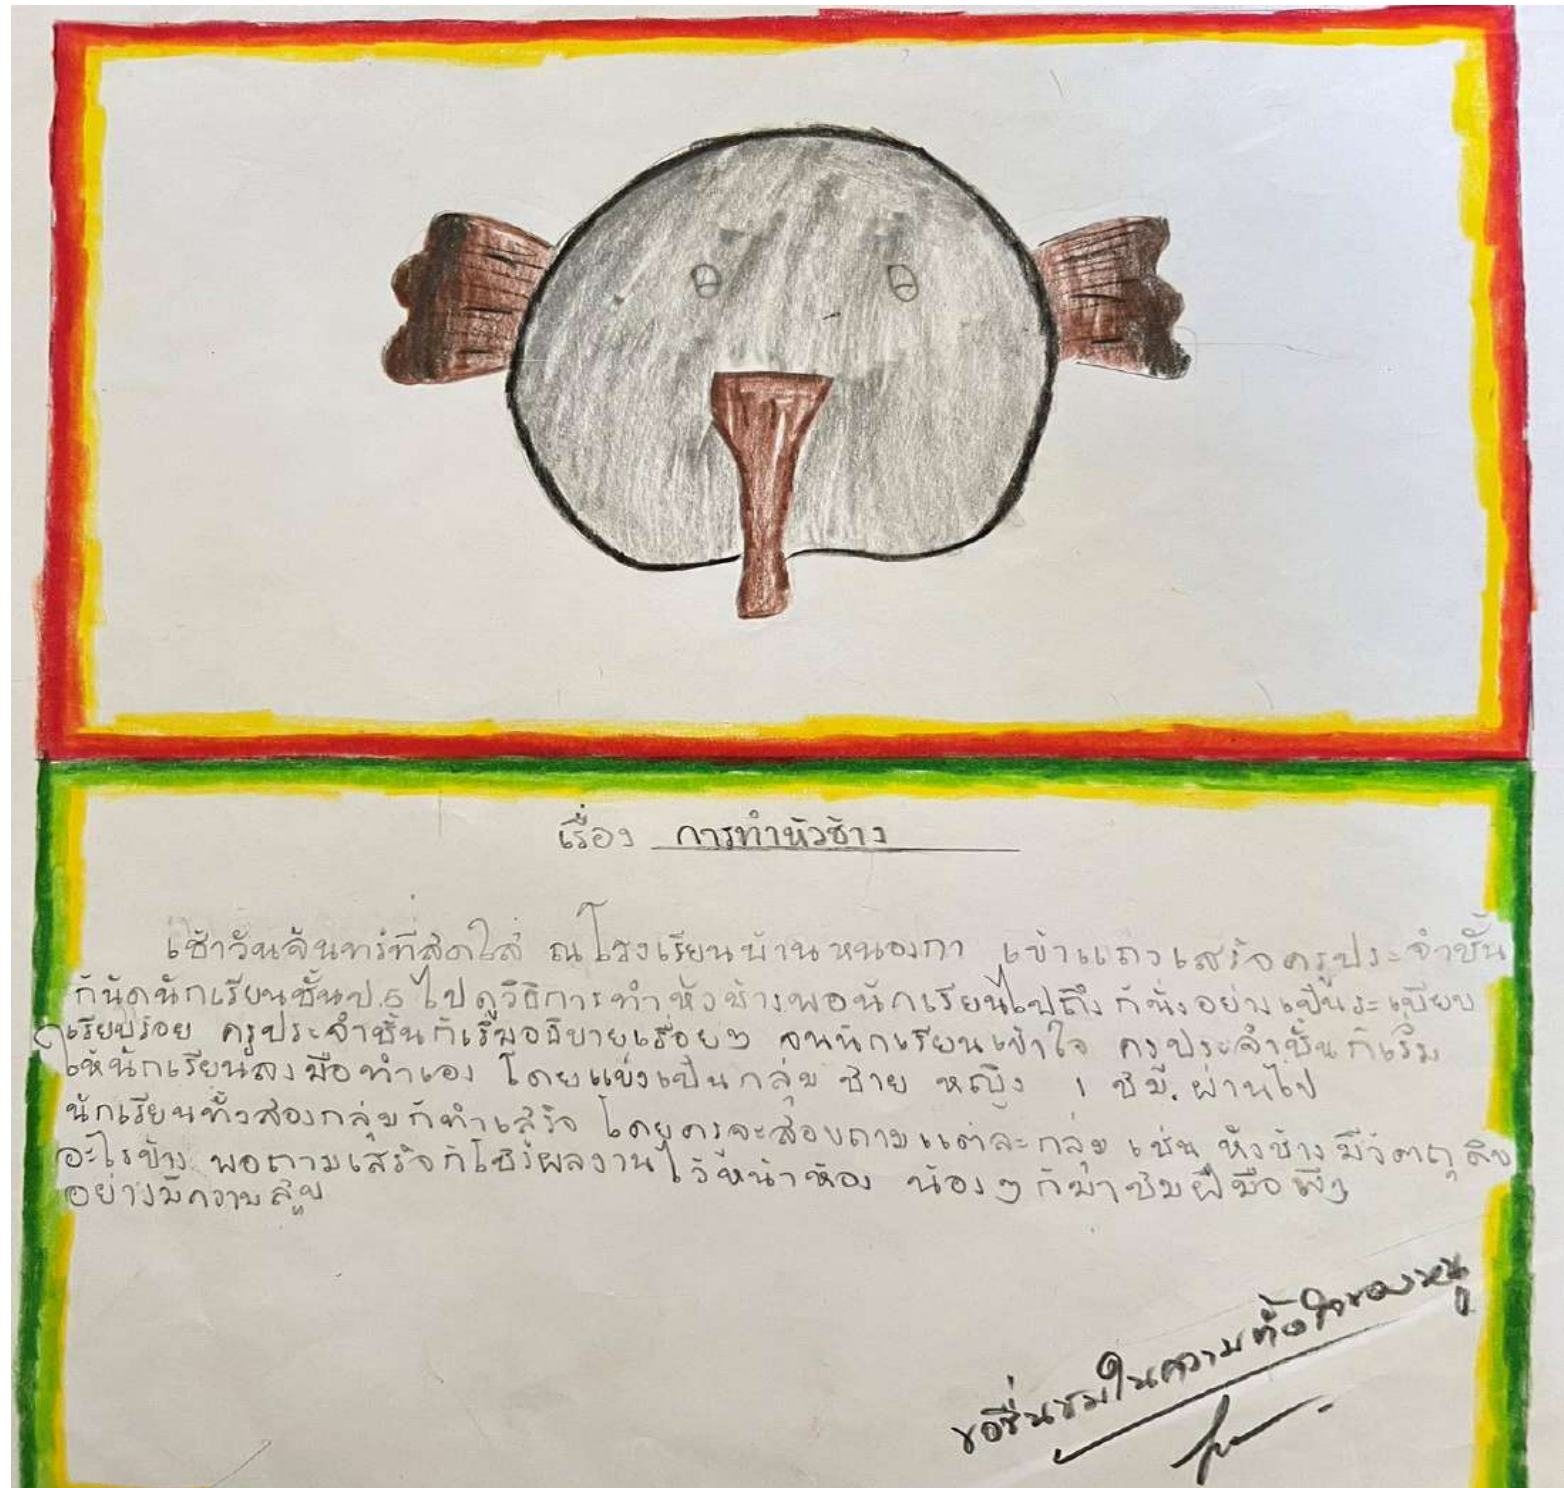 เรื่อง การทำหัวช้าง
เช้าวันจันทร์ที่สดใส ณ โรงเรียนบ้านหนองกา เข้าแถวเสร็จครูประจำชั้น
ก็นัดนักเรียนชั้นป.5 ไปดูวิธีการทำหัวช้างพอนักเรียนไปถึงก็นั่งอย่างเป็นระเบียบ
เรียบร้อย ครูประจำชั้นก็เริ่มอธิบายเรื่อยๆ จนนักเรียนเข้าใจ ครูประจำชั้นก็เริ่ม
ให้นักเรียนลงมือทำเอง โดยแบ่งเป็นกลุ่ม ชาย หญิง 1 ชม. ผ่านไป
นักเรียนทั้งสองกลุ่มก็ทำเสร็จ โดยครูจะสอบถามแต่ละกลุ่ม เช่น หัวช้างมีวัตถุดิบ
อะไรบ้าง พอถามเสร็จก็โชว์ผลงานไว้หน้าห้อง น้องๆ ก็มาชมฝีมือ
อย่างมีความสุข
ขอชื่นชมในความตั้งใจของหนู